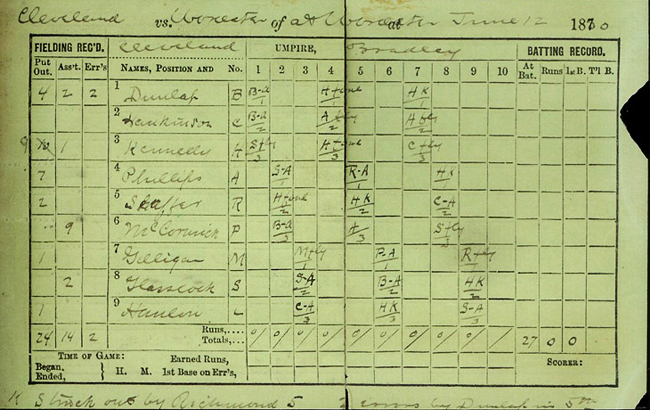 Cleveland vs. Worcester of at Worcester at June 12 1880
FIELDING REC'D. Cleveland UMPIRE, Bradley BATTING RECORD.
Put Out. Ass't. Err's NAMES, POSITION AND No. 1 2 3 4 5 6 7 8 9 10 At Bat. Runs 1st B. T'l B.
4 2 2 1 Dunlap B B-A 1 H + out 1 HK 1
2 Hankinson C B-A 2 A fly 2 A fly 2
1 3 Kennedy H S + fly 3 A + out 3 C + fly 3
7 4 Phillips A S-A 1 R-A 1 HK 1
2 5 Shaffer R H + out 2 HK 2 C-A 2
9 6 McCormick P B-A 3 A 3 S + fly 3
1 7 Gilligan M M + fly 1 P-A 1 R + fly 1
2 8 Glasscock S S-A 2 B-A 2 HK 2
1 9 Hanlon L C-A 3 HK 3 S-A 3
24 14 2 Runs,.... Totals,... 0/ 0/ 0/ 0/ 0/ 0/ 0/ 0/ 0/ 27 0 0
TIME OF GAME: Earned Runs, SCORER:
Began, Ended, H. M. 1st Base on Err's,
K Struck out by Richmond 5 2 errors by Dunlap in 5th